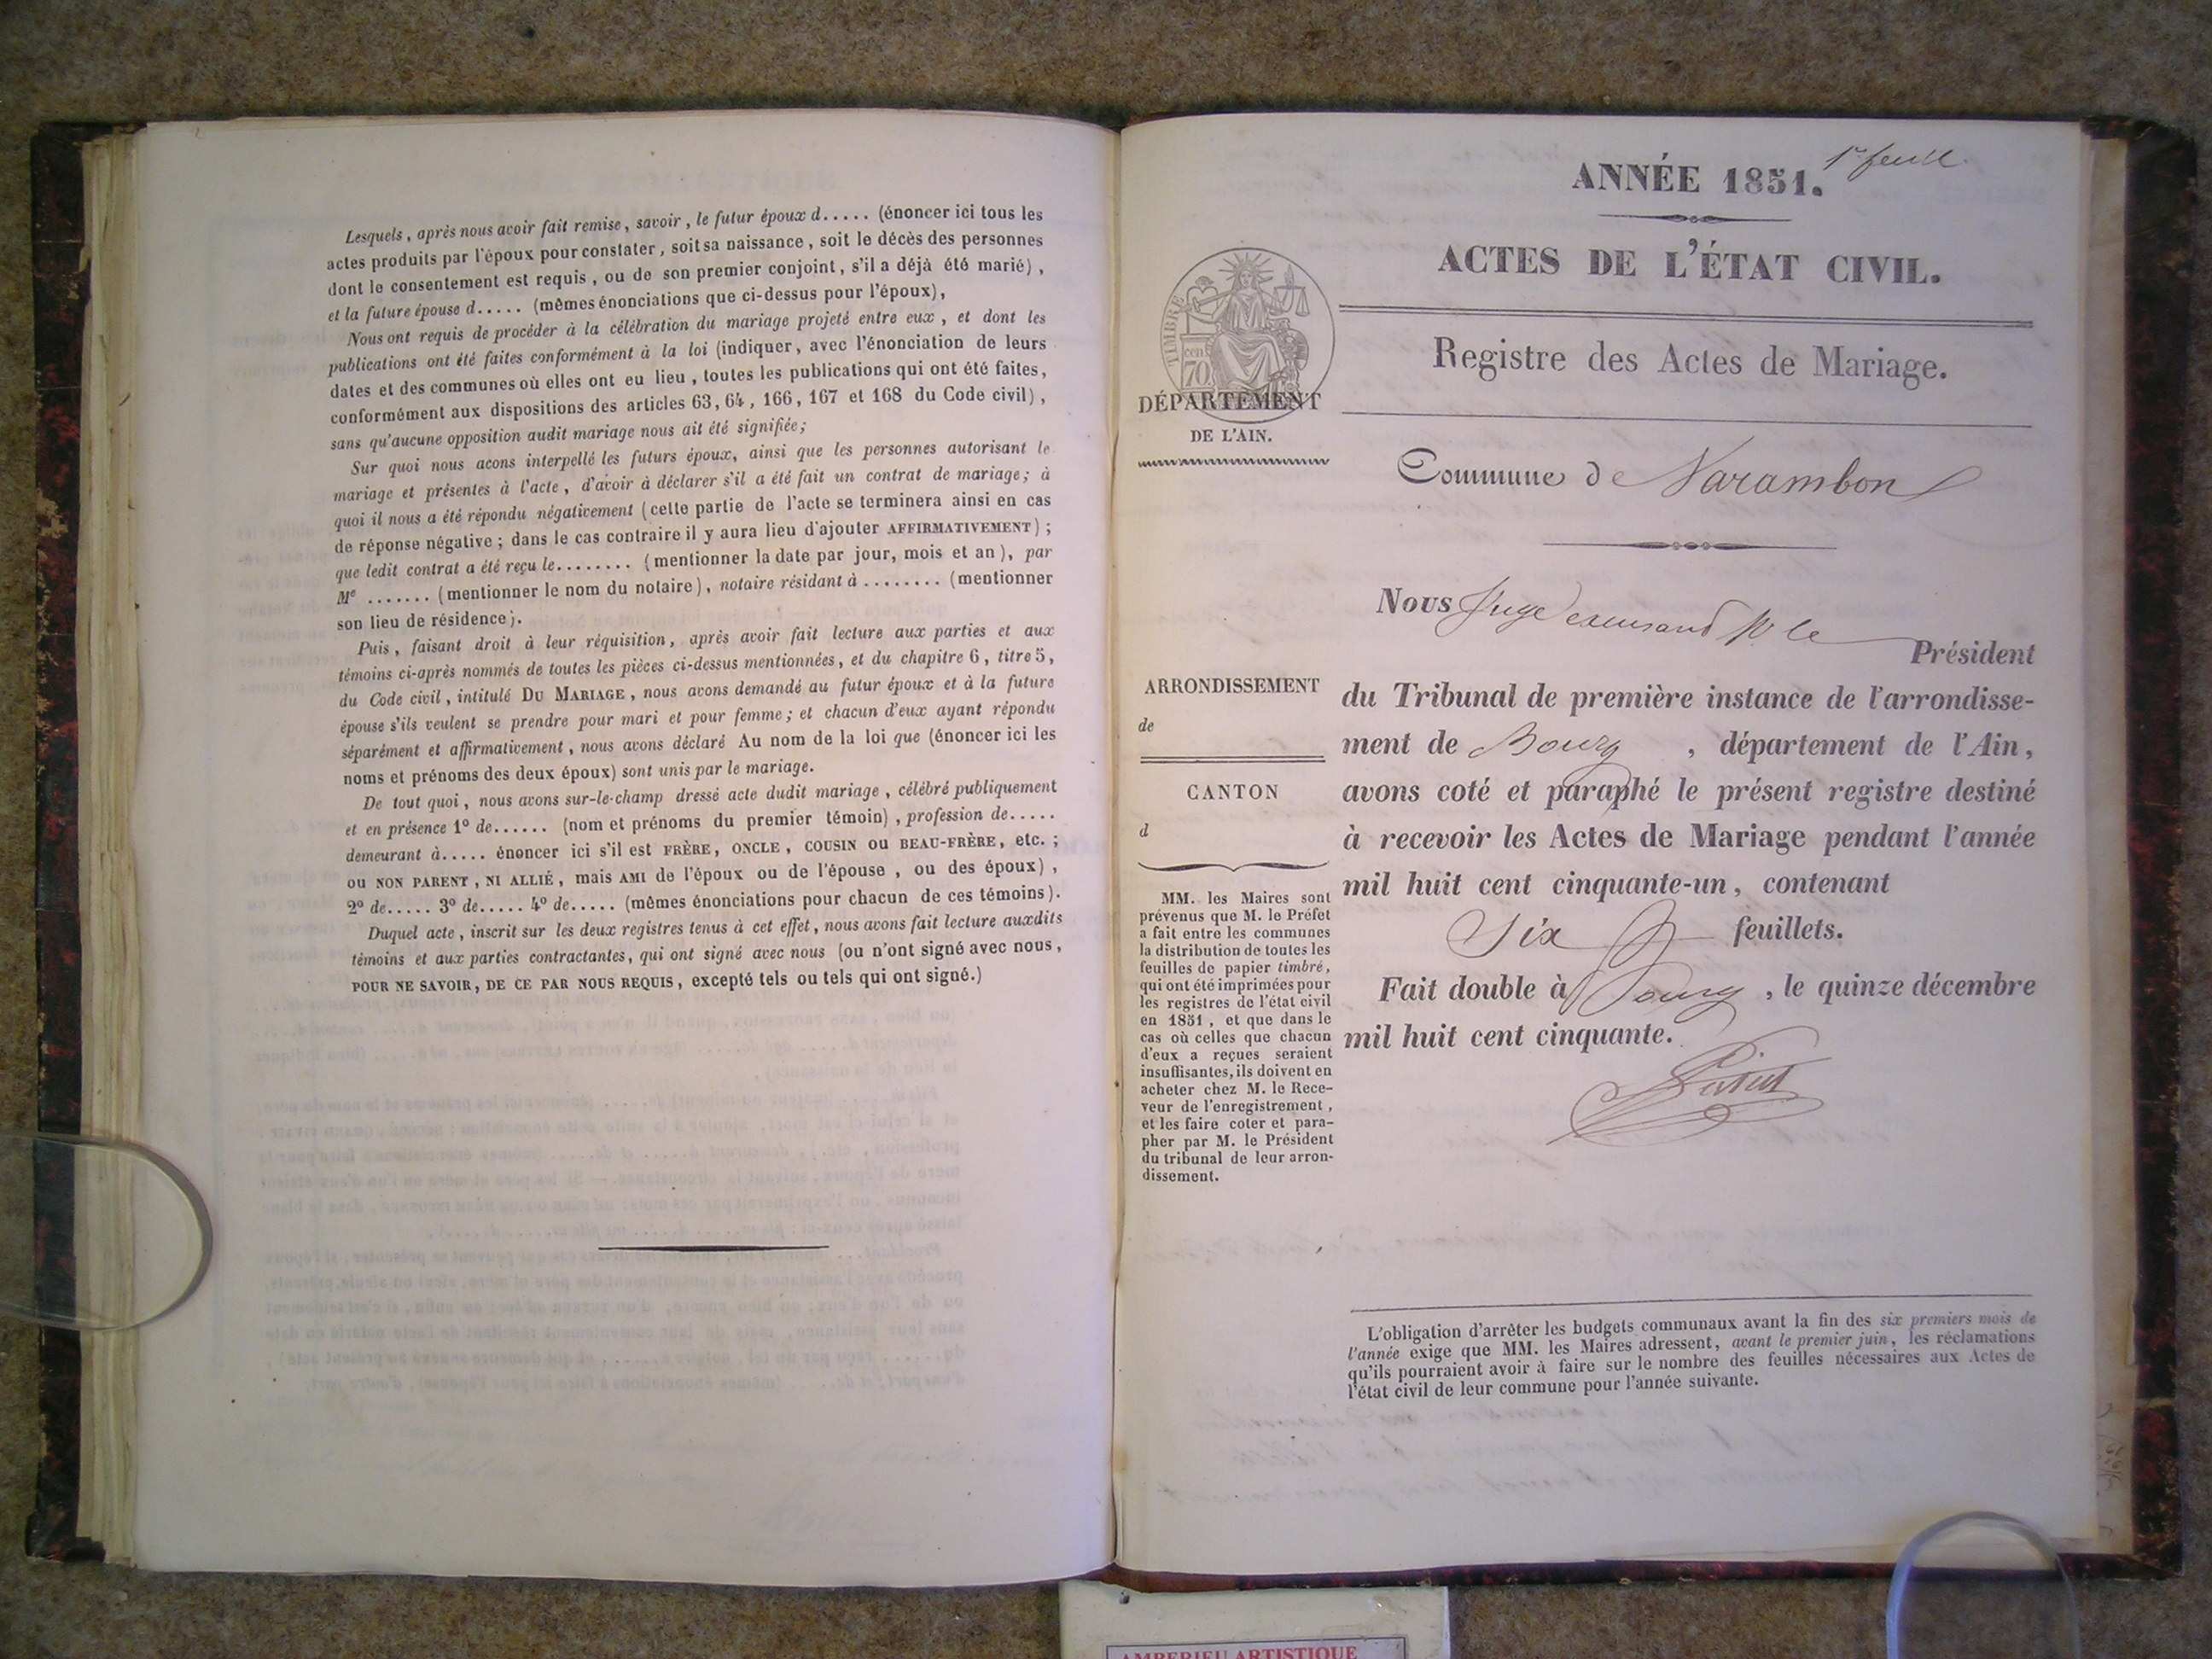 Lesquels, après nous avoir fait remise, savoir, le futur époux d..... (énoncer ici tous les
actes produits par l'époux pour constater, soit sa naissance, soit le décès des personnes
dont le consentement est requis, ou de son premier conjoint, s'il a déjà été marié),
et la future épouse d..... (mêmes énonciations que ci-dessus pour l'époux),
Nous ont requis de procéder à la célébration du mariage projeté entre eux, et dont les
publications ont été faites conformément à la loi (indiquer, avec l'énonciation de leurs
dates et des communes où elles ont eu lieu, toutes les publications qui ont été faites,
conformément aux dispositions des articles 63, 64, 166, 167 et 168 du Code civil),
sans qu'aucune opposition audit mariage nous ait été signifiée;
Sur quoi nous avons interpellé les futurs époux, ainsi que les personnes autorisant le
mariage et présentes à l'acte, d'avoir à déclarer s'il a été fait un contrat de mariage; à
quoi il nous a été répondu négativement (cette partie de l'acte se terminera ainsi en cas
de réponse négative; dans le cas contraire il y aura lieu d'ajouter AFFIRMATIVEMENT);
que ledit contrat a été reçu le........ (mentionner la date par jour, mois et an), par
Me ....... (mentionner le nom du notaire), notaire résidant à ........ (mentionner
son lieu de résidence).
Puis, faisant droit à leur réquisition, après avoir fait lecture aux parties et aux
témoins ci-après nommés de toutes les pièces ci-dessus mentionnées, et du chapitre 6, titre 5,
du Code civil, intitulé DU MARIAGE, nous avons demandé au futur époux et à la future
épouse s'ils veulent se prendre pour mari et pour femme; et chacun d'eux ayant répondu
séparément et affirmativement, nous avons déclaré Au nom de la loi que (énoncer ici les
noms et prénoms des deux époux) sont unis par le mariage.
De tout quoi, nous avons sur-le-champ dressé acte dudit mariage, célébré publiquement
et en présence 1º de...... (nom et prénoms du premier témoin), profession de.....
demeurant à..... énoncer ici s'il est FRÈRE, ONCLE, COUSIN OU BEAU-FRÈRE, etc.;
ou NON PARENT, NI ALLIÉ, mais AMI de l'époux ou de l'épouse, ou des époux),
2º de..... 3º de..... 4º de..... (mêmes énonciations pour chacun de ces témoins).
Duquel acte, inscrit sur les deux registres tenus à cet effet, nous avons fait lecture auxdits
témoins et aux parties contractantes, qui ont signé avec nous (ou n'ont signé avec nous,
POUR NE SAVOIR, DE CE PAR NOUS REQUIS, excepté tels ou tels qui ont signé.)
1r feuil
ANNÉE 1851.
ACTES DE L'ÉTAT CIVIL.
TIMBRE
cent
70
Registre des Actes de Mariage.
DÉPARTEMENT
DE L'AIN.
Commune de Varambon
Nous Juge excusant Mr le
Président
ARRONDISSEMENT
de
CANTON
d
du Tribunal de première instance de l'arrondisse-
ment de Bourg, département de l'Ain,
avons coté et paraphé le présent registre destiné
à recevoir les Actes de Mariage pendant l'année
mil huit cent cinquante-un, contenant
Six feuillets.
Fait double à Bourg, le quinze décembre
mil huit cent cinquante.
MM. les Maires sont
prévenus que M. le Préfet
a fait entre les communes
la distribution de toutes les
feuilles de papier timbré,
qui ont été imprimées pour
les registres de l'état civil
en 1851, et que dans le
cas où celles que chacun
d'eux a reçues seraient
insuffisantes, ils doivent en
acheter chez M. le Rece-
veur de l'enregistrement,
et les faire coter et para-
pher par M. le Président
du tribunal de leur arron-
dissement.
L'obligation d'arrêter les budgets communaux avant la fin des six premiers mois de
l'année exige que MM. les Maires adressent, avant le premier juin, les réclamations
qu'ils pourraient avoir à faire sur le nombre des feuilles nécessaires aux Actes de
l'état civil de leur commune pour l'année suivante.
AMBERIEU ARTISTIQUE